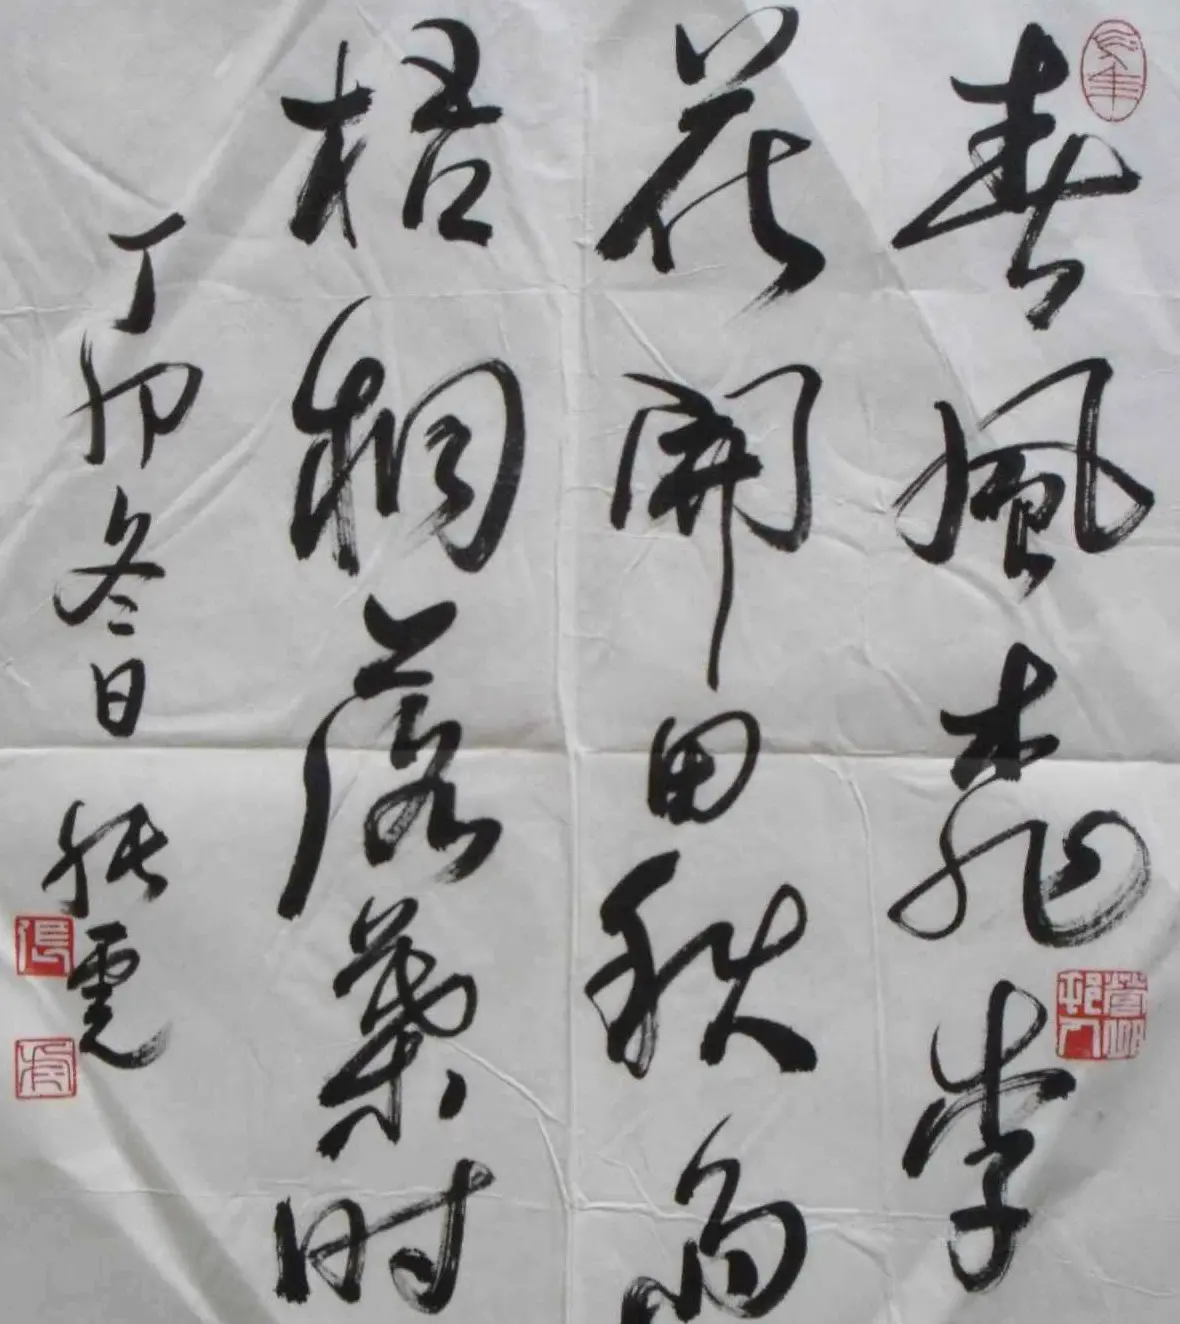 春風桃李
花開田秋雨
梧桐落葉時
丁卯冬日 張雲
張